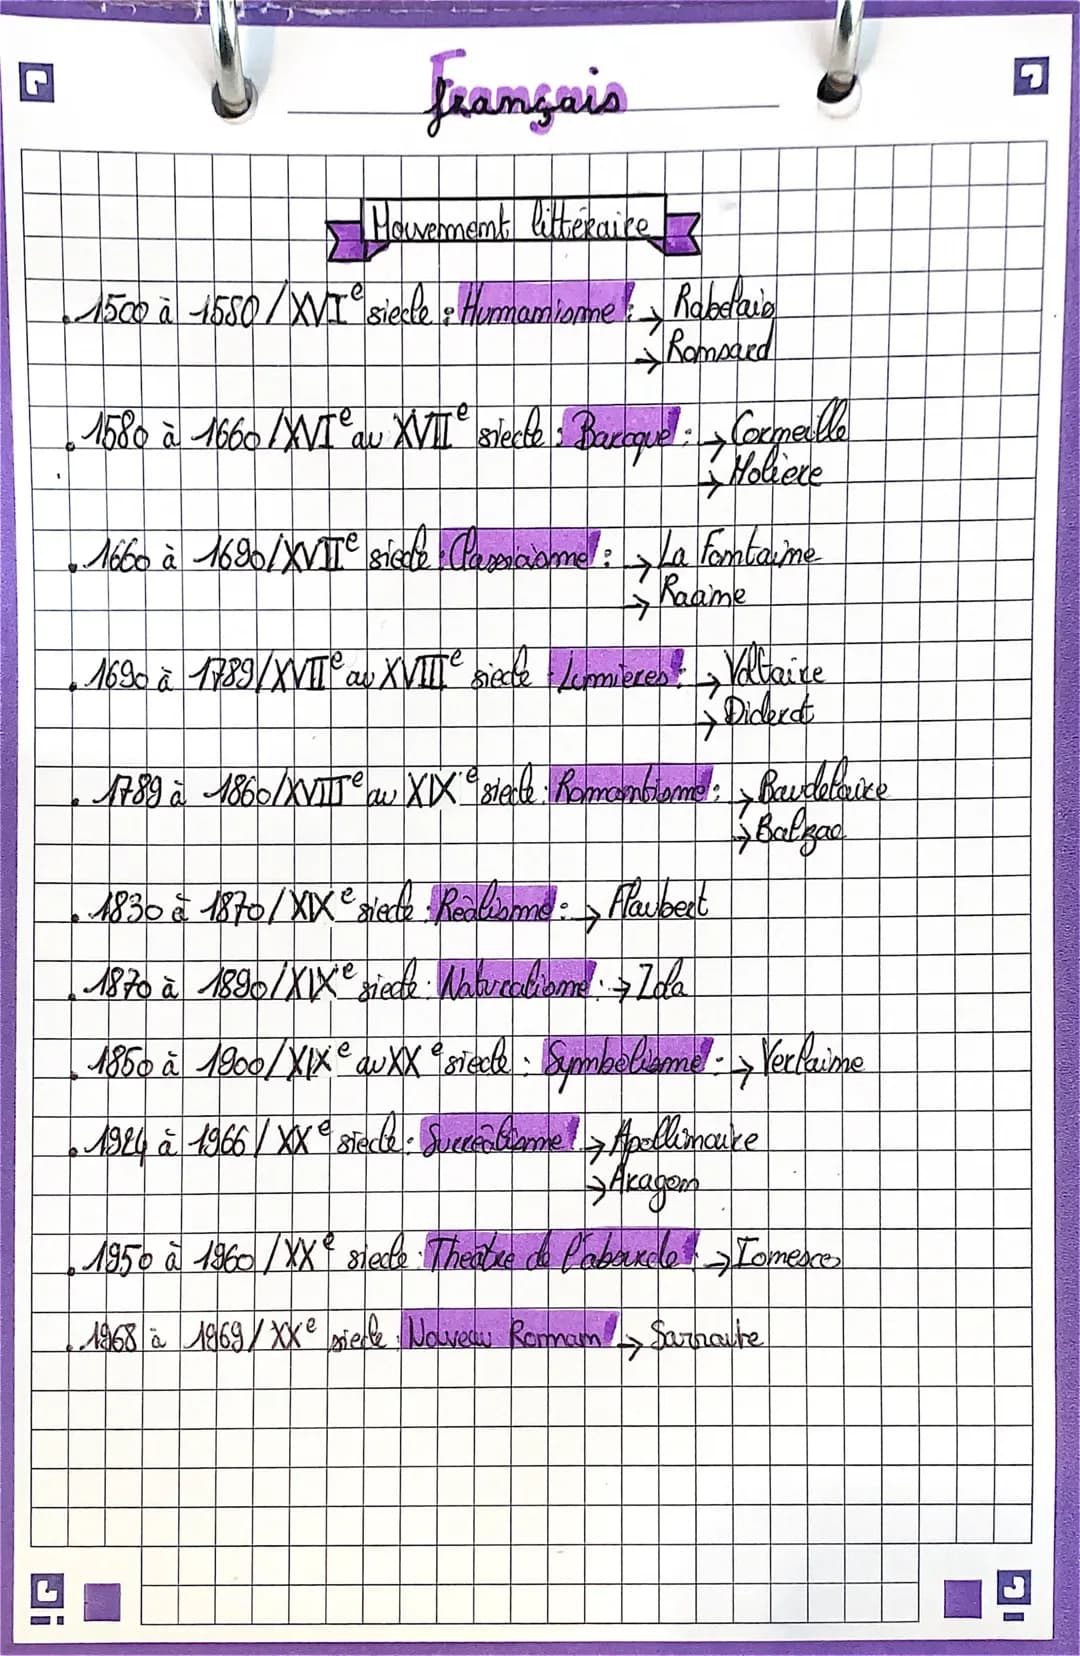 Français
Mouvement littéraire
. 1500 à 1580/XVIe siecle : Humanisme : → Rabelais
→ Ronsard
. 1580 à 1660/XVIe au XVIIe siecle : Baroque : → Corneille
→ Molière
. 1660 à 1690/XVIIe siecle : Classicisme : → La Fontaine
→ Racine
. 1690 à 1789/XVIIe au XVIIIe siecle : Lumières : → Voltaire
→ Diderot
. 1789 à 1860/XVIIIe au XIXe siecle : Romantisme : → Baudelaire
→ Balzac
. 1830 à 1870/XIXe siecle : Réalisme : → Flaubert
. 1870 à 1890/XIXe siecle : Naturalisme : → Zola
. 1850 à 1900/XIXe au XXe siecle : Symbolisme : → Verlaine
. 1924 à 1966/XXe siecle : Surréalisme : → Apollinaire
→ Aragon
. 1950 à 1960/XXe siecle : Theâtre de l'absurde : → Ionesco
. 1968 à 1969/XXe siecle : Nouveau Roman → Sarraute